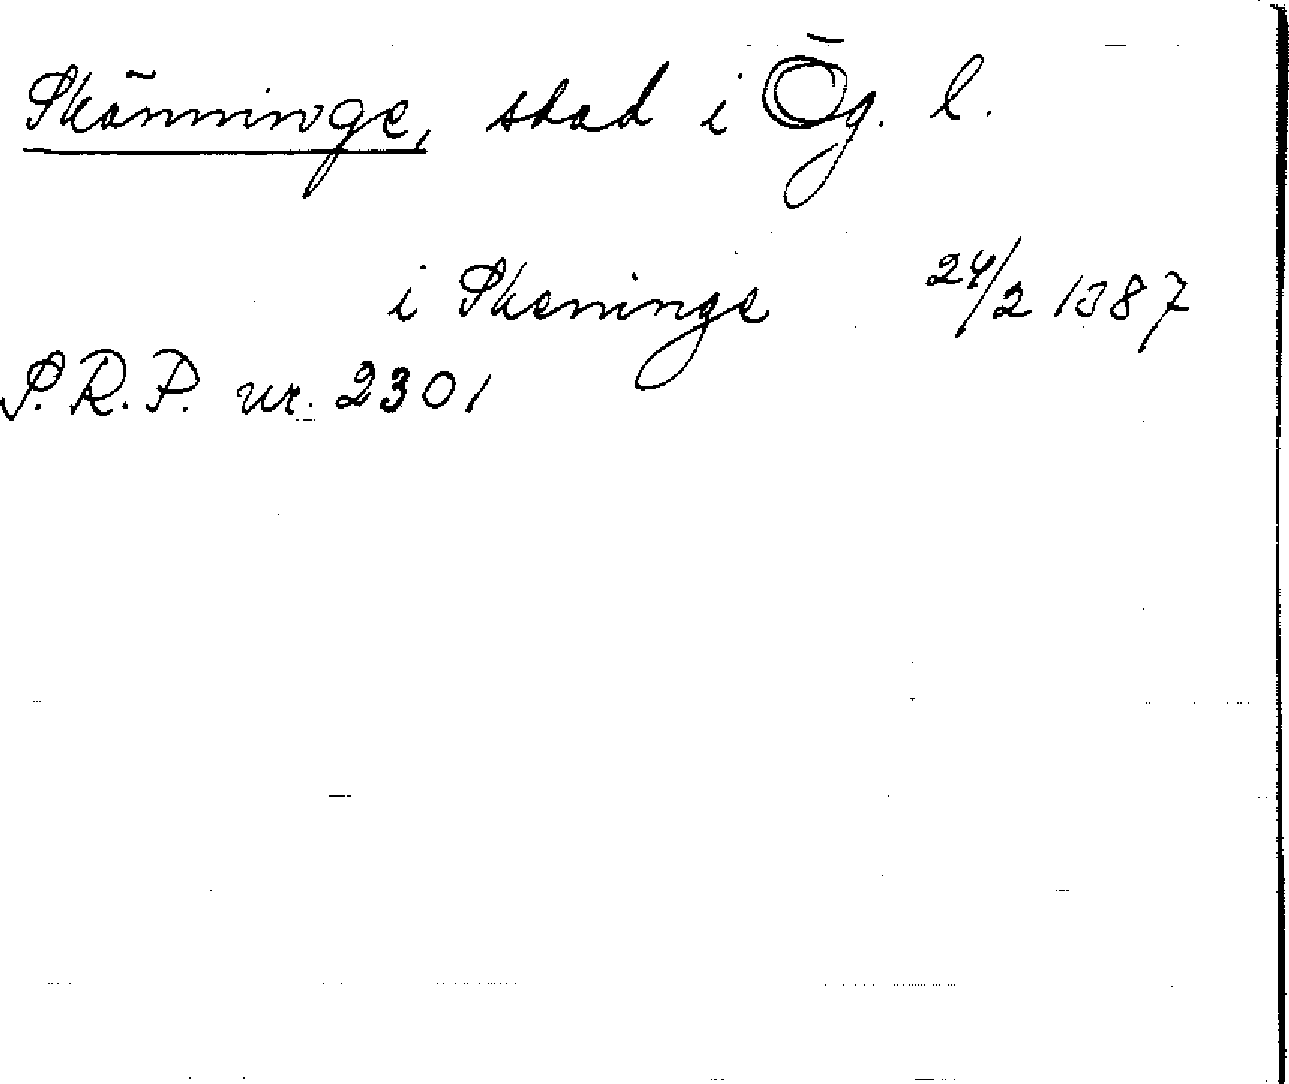 Skänninge, stad i Ög. l.
i Skeninge 24/2 1387
S.R.P. nr. 2301